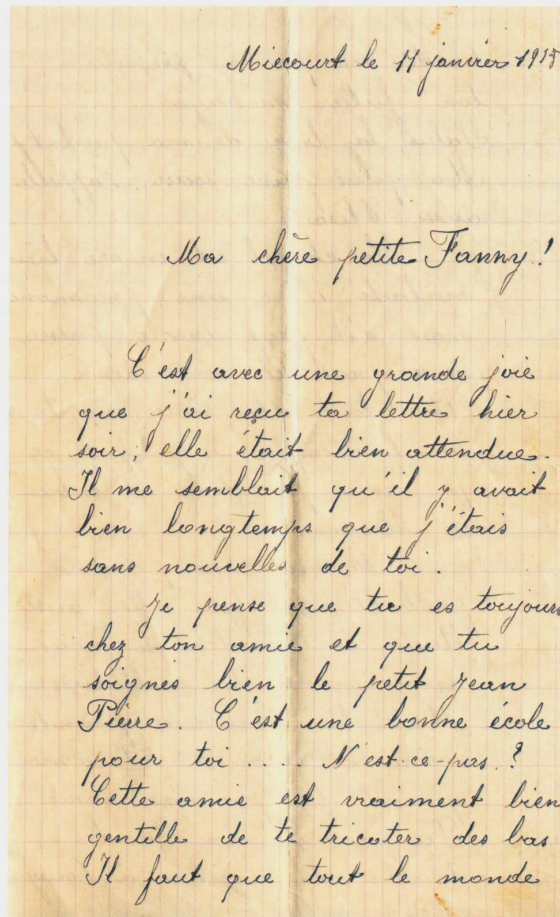 Miécourt le 11 janvier
Ma chère petite Fanny!
C'est avec une grande joie
que j'ai reçu ta lettre hier
soir, elle était bien attendue.
Il me semblait qu'il y avait
bien longtemps que j'étais
sans nouvelles de toi.
Je pense que tu es toujours
chez ton amie et que tu
soignes bien le petit Jean
Pierre. C'est une bonne école
pour toi .... N'est-ce-pas ?
Cette amie est vraiment bien
gentille de te tricoter des bas
Il faut que tout le monde